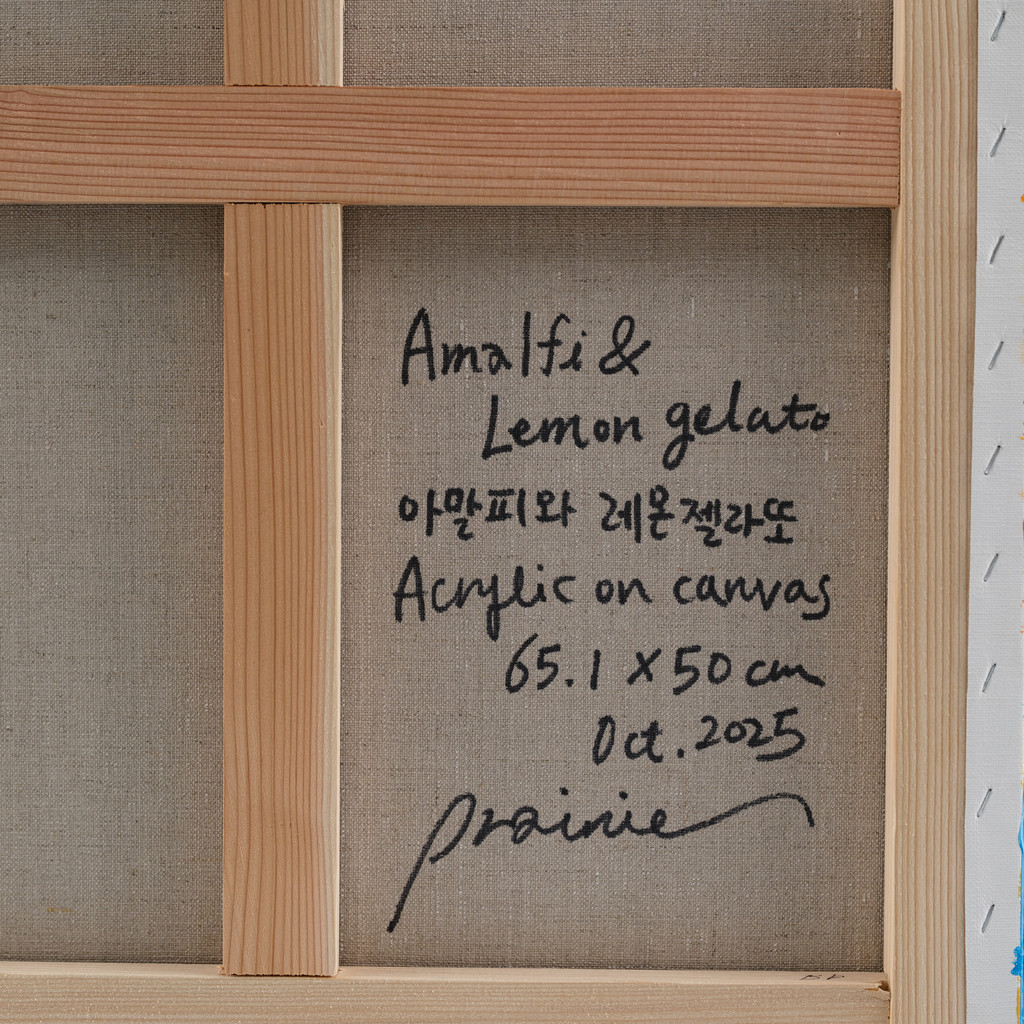 Amalfi &
Lemon gelato
아말피와 레몬젤라또
Acrylic on canvas
65.1 X 50 cm
Oct. 2025
prairie